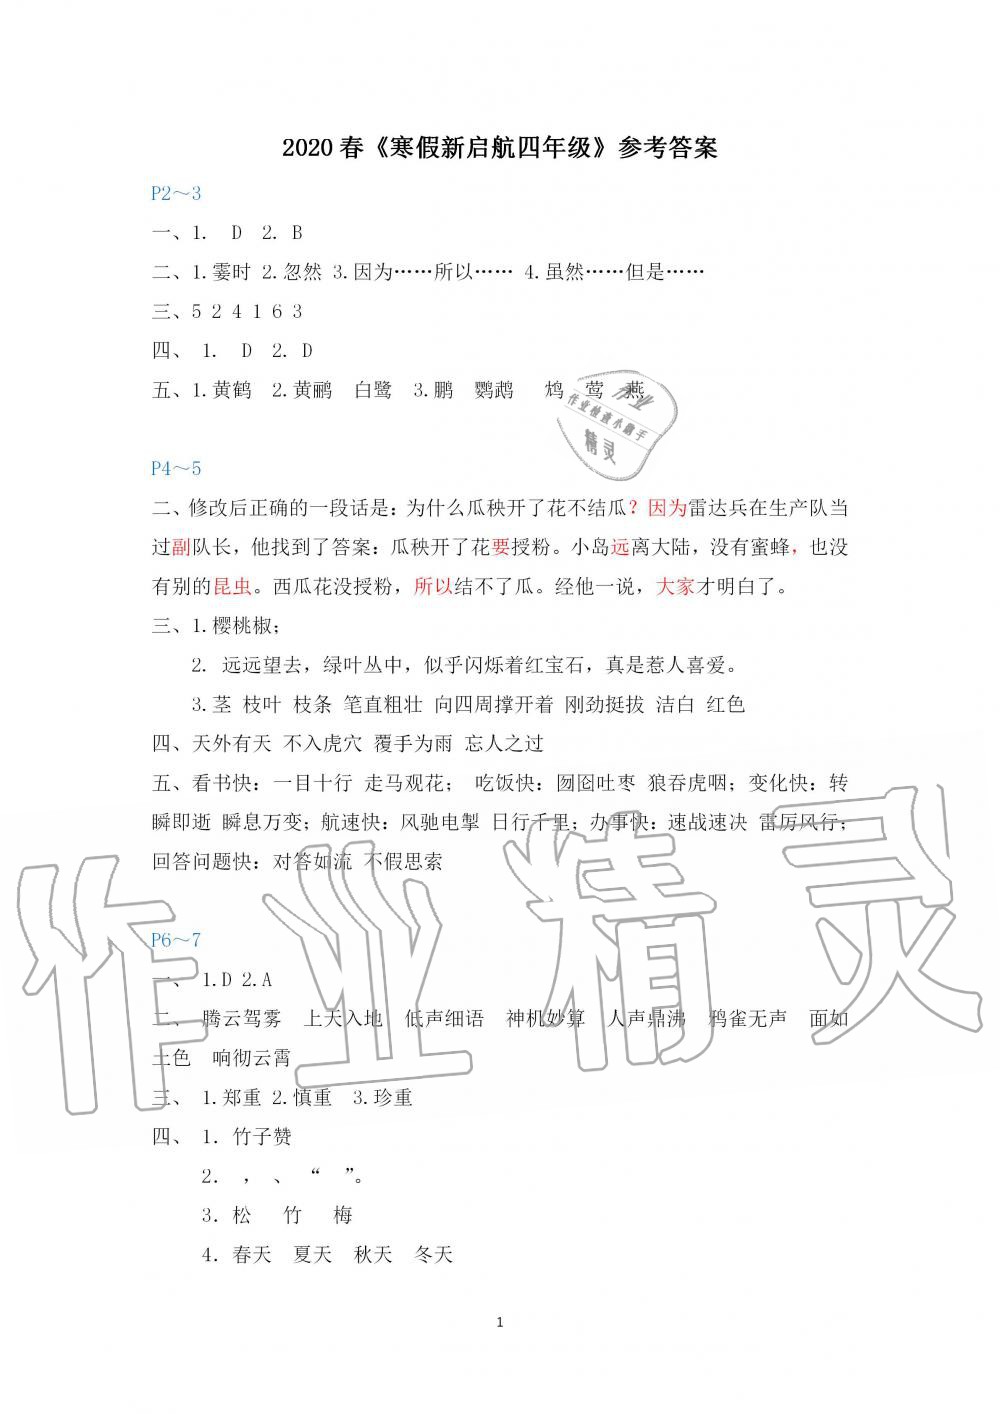 2020 春《寒假新启航四年级》参考答案
P2～3
一、1. D 2. B
二、1.霎时 2.忽然 3.因为……所以…… 4.虽然……但是……
三、5 2 4 1 6 3
四、 1. D 2. D
五、1.黄鹤 2.黄鹂 白鹭 3.鹏 鹦鹉 鸩 莺 燕
作业
作业检查小助手
精灵
P4～5
二、修改后正确的一段话是：为什么瓜秧开了花不结瓜？因为雷达兵在生产队当
过副队长，他找到了答案：瓜秧开了花要授粉。小岛远离大陆，没有蜜蜂，也没
有别的昆虫。西瓜花没授粉，所以结不了瓜。经他一说，大家才明白了。
三、1.樱桃椒；
2. 远远望去，绿叶丛中，似乎闪烁着红宝石，真是惹人喜爱。
3.茎 枝叶 枝条 笔直粗壮 向四周撑开着 刚劲挺拔 洁白 红色
四、天外有天 不入虎穴 覆手为雨 忘人之过
五、看书快：一目十行 走马观花； 吃饭快：囫囵吐枣 狼吞虎咽；变化快：转
瞬即逝 瞬息万变；航速快：风驰电掣 日行千里；办事快：速战速决 雷厉风行；
回答问题快：对答如流 不假思索
作业精灵
P6～7
一、 1.D 2.A
二、 腾云驾雾 上天入地 低声细语 神机妙算 人声鼎沸 鸦雀无声 面如
土色 响彻云霄
三、 1.郑重 2.慎重 3.珍重
四、 1. 竹子赞
2. ， 、 “ ”。
3. 松 竹 梅
4. 春天 夏天 秋天 冬天
1